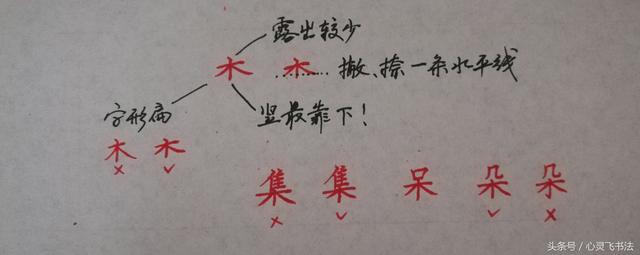 露出较少
木 木 ……… 撇、捺一条水平线
字形扁
竖最靠下！
木 木
× ✓
集 集 呆 朵 朵
× ✓ ✓ ×
头条号 / 心灵飞书法